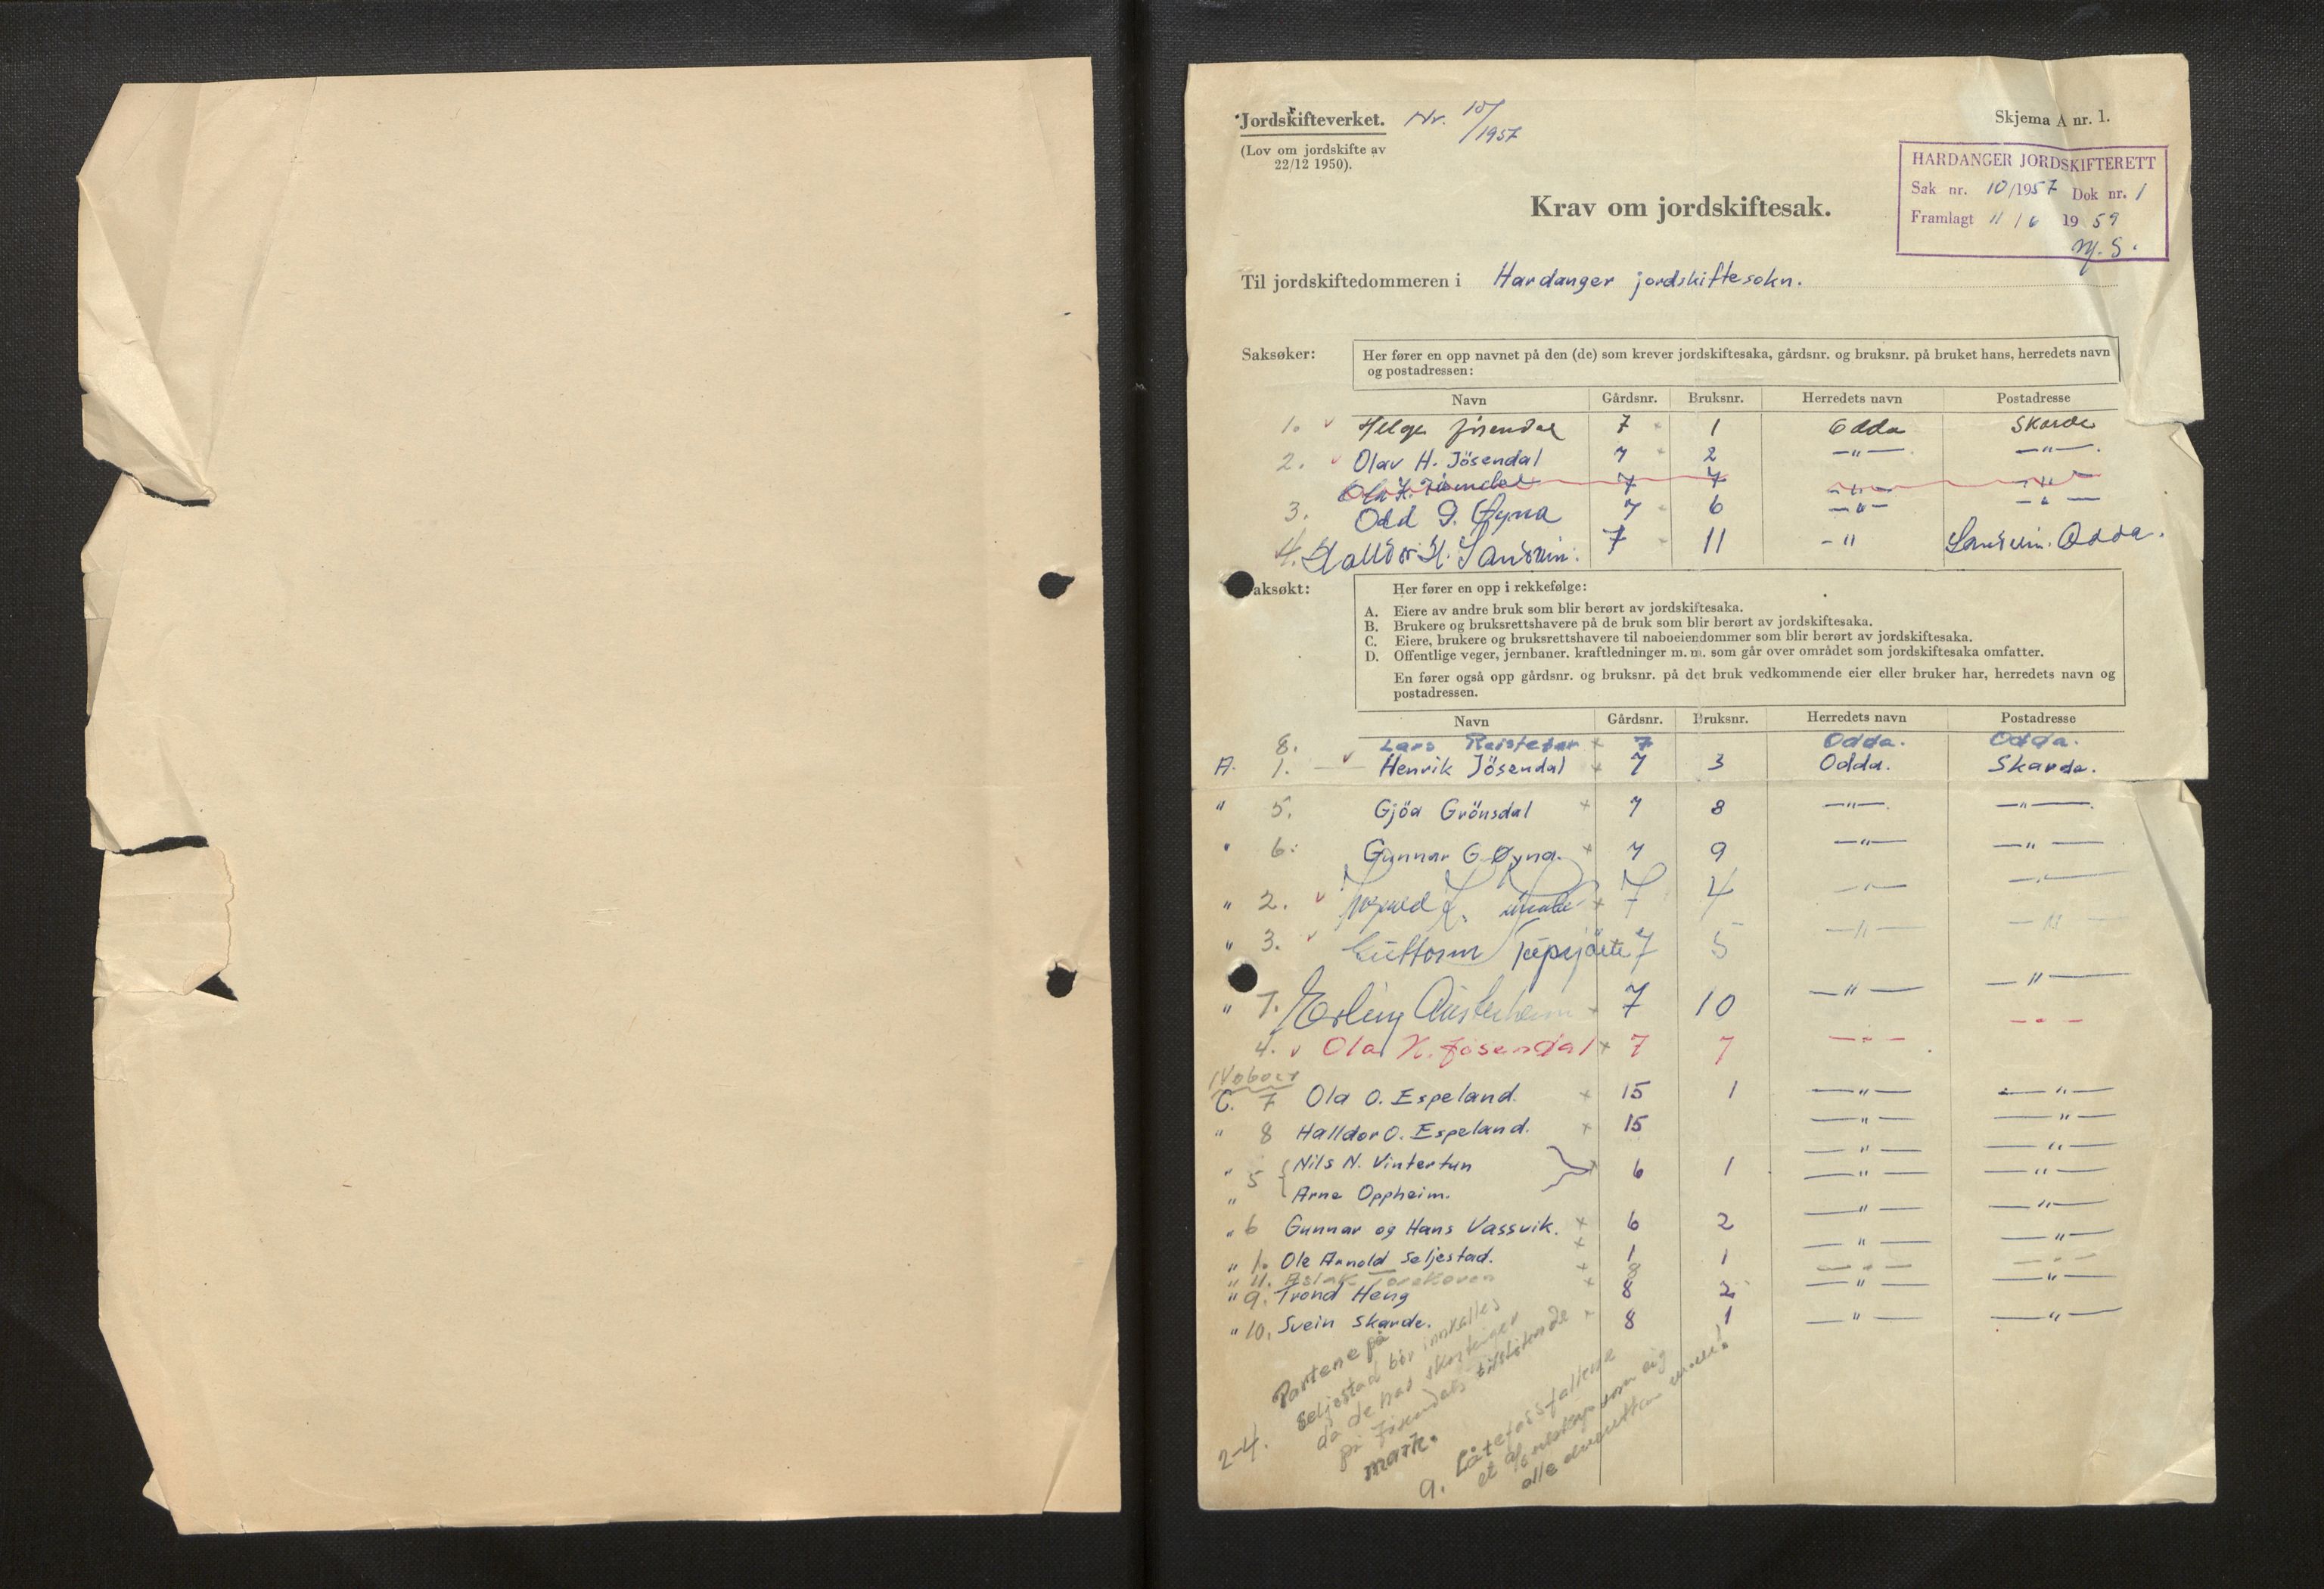 Jordskifteverket. Nr. 10/1957
Skjema A nr. 1.
(Lov om jordskifte av
22/12 1950).
HARDANGER JORDSKIFTERETT
Sak nr. 10/1957 Dok nr. 1
Framlagt 11/6 1959
M. S.
Krav om jordskiftesak.
Til jordskiftedommeren i Hardanger jordskiftesokn.
Saksøker: Her fører en opp navnet på den (de) som krever jordskiftesaka, gårdsnr. og bruksnr. på bruket hans, herredets navn
og postadressen:
Navn Gårdsnr. Bruksnr. Herredets navn Postadresse
1. v Helge Jösendal 7 1 Odda Skarde
2. v Olav H. Jösendal 7 2 —"— —"—
Ola K. Jösendal 7 7 —"— —"—
3. Odd G. Øyna 7 6 —"— —"—
4. Halldor H. Sandvin. 7 11 —"— Sandvin. Odda.
aksøkt: Her fører en opp i rekkefølge:
A. Eiere av andre bruk som blir berørt av jordskiftesaka.
B. Brukere og bruksrettshavere på de bruk som blir berørt av jordskiftesaka.
C. Eiere, brukere og bruksrettshavere til naboeiendommer som blir berørt av jordskiftesaka.
D. Offentlige veger, jernbaner. kraftledninger m. m. som går over området som jordskiftesaka omfatter.
En fører også opp gårdsnr. og bruksnr. på det bruk vedkommende eier eller bruker har, herredets navn og
postadressen.
Navn Gårdsnr. Bruksnr. Herredets navn Postadresse
8. Lars Reisteter x 7 Odda. Odda.
A. 1. — v Henrik Jösendal x 7 3 Odda. Skarde.
" 5. Gjöa Grönsdal x 7 8 —"— —"—
" 6. Gunnar G. Øyna. x 7 9 —"— —"—
" 2. v x 7 4 —"— —"—
" 3. v Guttorm 7 5 —"— —"—
" 7. Erling Austerheim x 7 10 —"— —"—
4. v Ola K. Jösendal x 7 7 —"— —"—
Naboer
C. 7 Ola O. Espeland. x 15 1 —"— —"—
" 8 Halldor O. Espeland. x 15 —"— —"—
" 5 { Nils N. Vintertun x 6 1 —"— —"—
" Arne Oppheim. —"— —"—
" 6 Gunnar og Hans Vassvik. x 6 2 —"— —"—
" 1. Ole Arnold Seljestad. x 1 1 —"— —"—
" 11. Aslak x 8 —"— —"—
" 9. Trond Heng x 8 2 —"— —"—
" 10. Svein Skarde. x 8 1 —"— —"—
2-4. Partene på
Seljestad bör innkalles
da de har skogteiger
på Jösendals tilstötende
mark.
9. Låtefossfallene
et som eig
alle